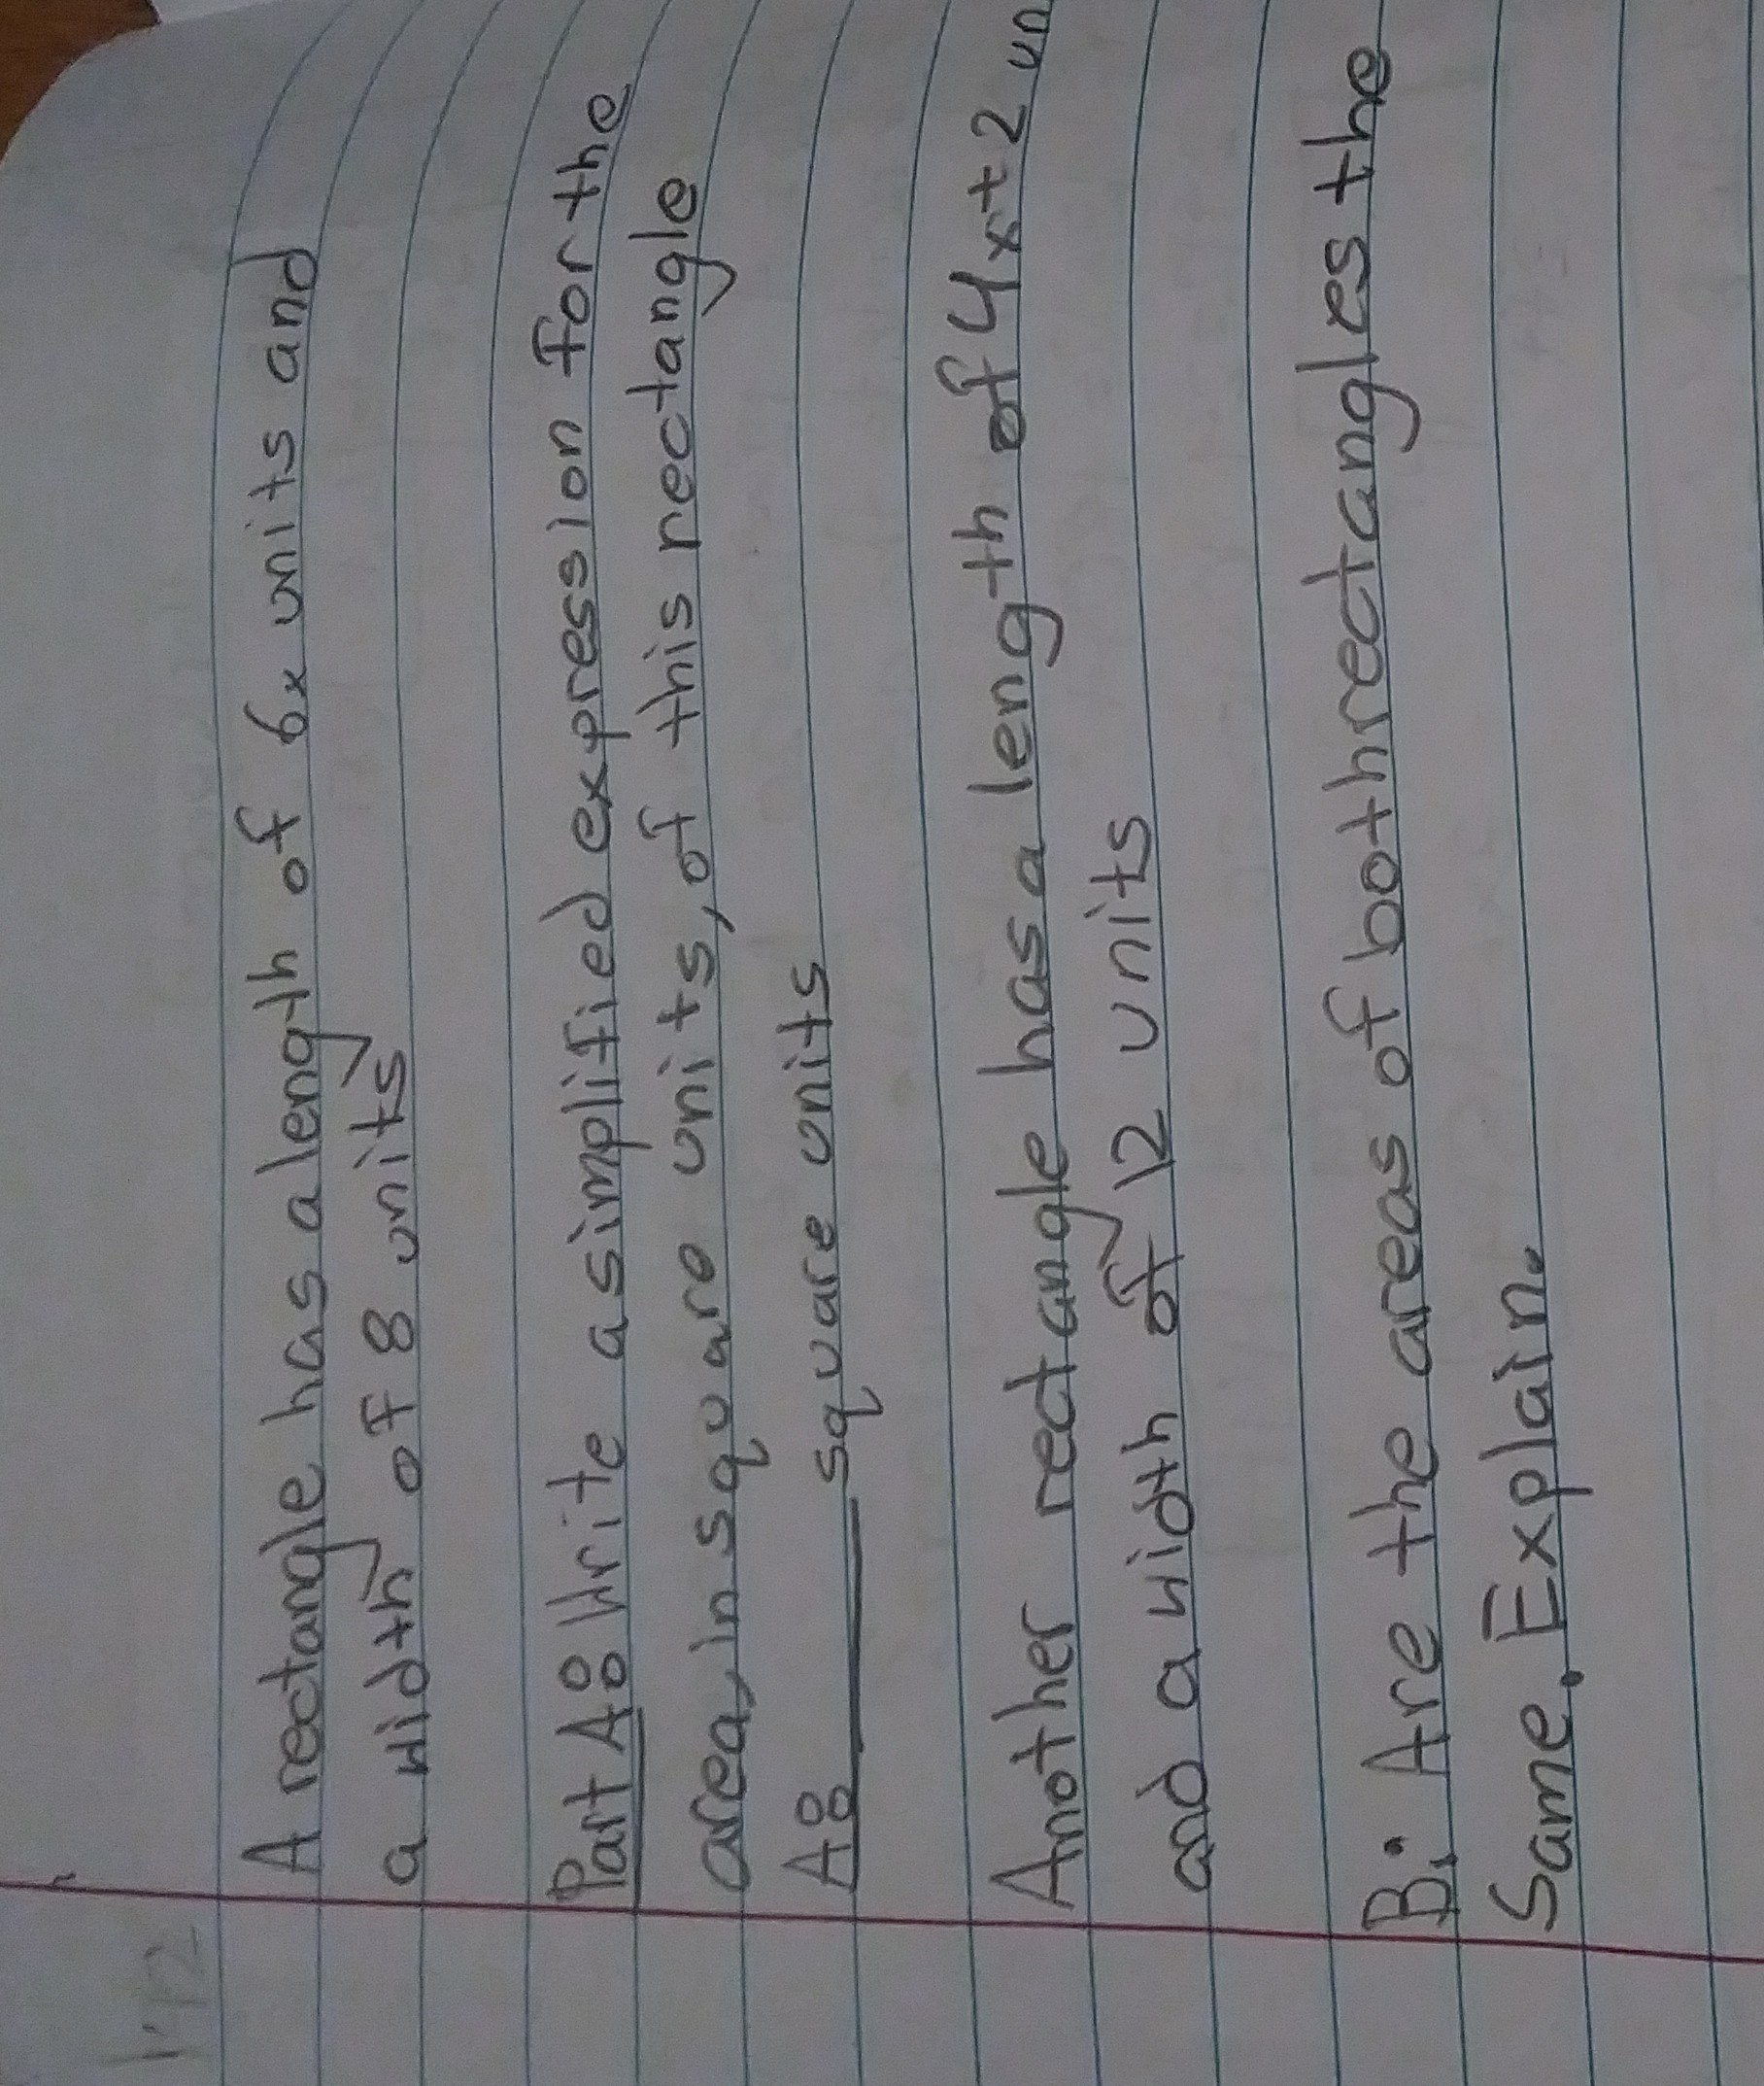 A rectangle has a length of 6x units and
a width of 8 units
Part A: Write a simplified expression for the
area, in square units, of this rectangle
A: ____ square units
Another rectangle has a length of 4x+2 un
and a width of 12 units
B: Are the areas of both rectangles the
Same. Explain.